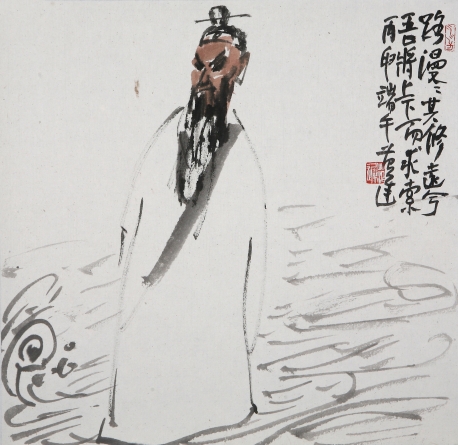 路漫〻其修遠兮
吾将上下而求索
丙申端午